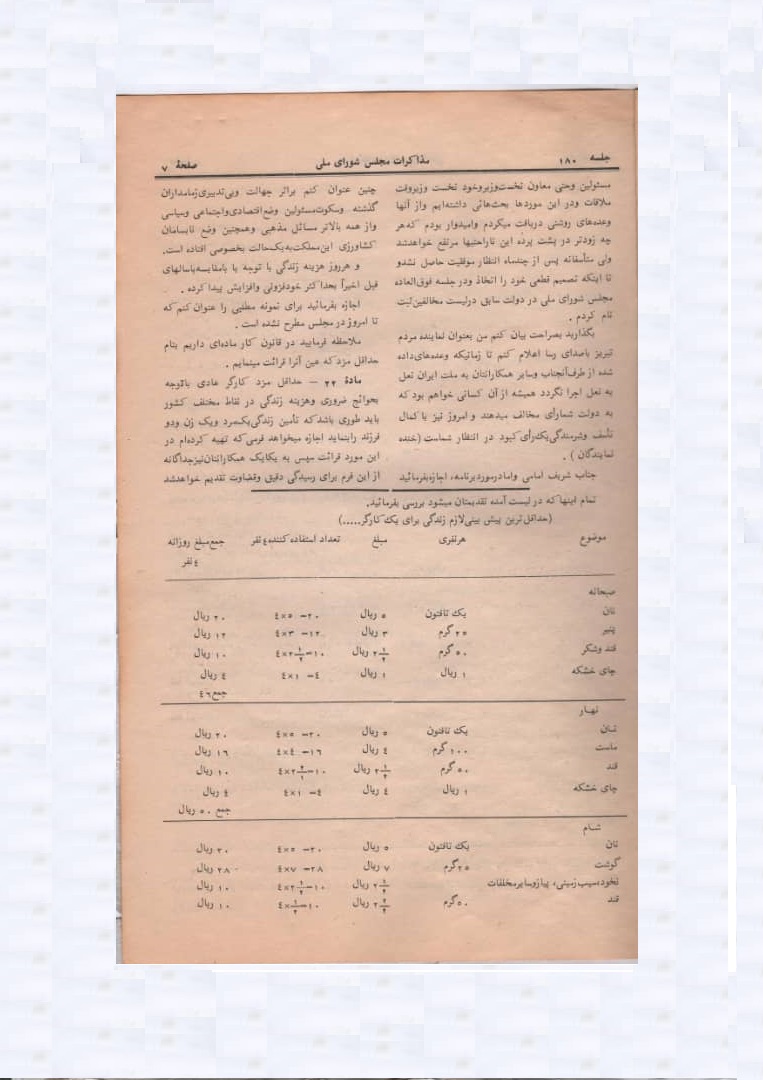 جلسه ۱۸۰
مذاکرات مجلس شورای ملی
صفحهٔ ۷
مسئولین وحتی معاون نخست‌وزیروخود نخست وزیروقت
ملاقات ودر این موردها بحث‌هائی داشته‌ایم واز آنها
وعده‌های روشنی دریافت میکردم وامیدوار بودم که‌هر
چه زودتر در پشت پرده این ناراحتیها مرتفع خواهدشد
ولی متأسفانه پس از چندماه انتظار موفقیت حاصل نشدو
تا اینکه تصمیم قطعی خود را اتخاذ ودر جلسه فوق‌العاده
مجلس شورای ملی در دولت سابق درلیست مخالفین‌ثبت
نام کردم .
بگذارید بصراحت بیان کنم من بعنوان نماینده مردم
تبریز باصدای رسا اعلام کنم تا زمانیکه وعده‌های‌داده
شده از طرف‌آنجناب وسایر همکارانتان به ملت ایران فعل
به فعل اجرا نگردد همیشه از آن کسانی خواهم بود که
به دولت شمارأی مخالف میدهند و امروز نیز با کمال
تأسف وشرمندگی‌یک‌رأی‌کبود در انتظار شماست (خنده
نمایندگان ) .
جناب شریف امامی وامادرموردبرنامه، اجازه‌بفرمائید
چنین عنوان کنم براثر جهالت وبی‌تدبیری‌زمامداران
گذشته وسکوت‌مسئولین وضع‌اقتصادی‌واجتماعی وسیاسی
واز همه بالاتر مسائل مذهبی وهمچنین وضع نابسامان
کشاورزی این‌مملکت‌به‌یک‌حالت بخصوصی افتاده است.
و هرروز هزینه زندگی با توجه با بامقایسه‌باسالهای
قبل اخیراً بحداکثر خودفزونی وافزایش پیدا کرده .
اجازه بفرمائید برای نمونه مطلبی را عنوان کنم‌که
تا امروز در مجلس مطرح نشده است .
ملاحظه فرمایید در قانون کار ماده‌ای داریم بنام
حداقل مزد که عین آنرا قرائت مینمایم .
مادهٔ ۲۲ – حداقل مزد کارگر عادی باتوجه
بحوائج ضروری وهزینه زندگی در نقاط مختلف کشور
باید طوری باشد که تأمین زندگی‌یک‌مرد ویک زن ودو
فرزند رابنماید اجازه میخواهد فرمی‌که تهیه کرده‌ام در
این مورد قرائت سپس به یکایک همکارانتان‌نیزجداگانه
از این فرم برای رسیدگی دقیق وقضاوت تقدیم خواهدشد
تمام اینها که در لیست آمده تقدیمتان میشود بررسی بفرمائید.
(حداقل‌ترین پیش بینی‌لازم زندگی برای یک‌کارگر.....)
موضوع هرنفری مبلغ تعداد استفاده کننده٤نفر جمع‌مبلغ روزانه
٤نفر
صبحانه
نان یک تافتون ۵ ریال ۲۰– ۵×٤ ۲۰ ریال
پنیر ۲۵ گرم ۳ ریال ۱۲– ۳×٤ ۱۲ ریال
قند وشکر ۵۰ گرم ۲ ۱/۲ ریال ۱۰–۲ ۱/۲×٤ ۱۰ ریال
چای خشکه ۱ ریال ۱ ریال ٤– ۱×٤ ٤ ریال
جمع٤٦
نهار
نان یک تافتون ۵ ریال ۲۰– ۵×٤ ۲۰ ریال
ماست ۱۰۰ گرم ٤ ریال ۱٦– ٤×٤ ۱٦ ریال
قند ۵۰ گرم ۲ ۱/۲ ریال ۱۰–۲ ۲/۱×٤ ۱۰ ریال
چای خشکه ۱ ریال ٤ ریال ٤– ۱×٤ ٤ ریال
جمع ۵۰ ریال
شام
نان یک تافتون ۵ ریال ۲۰– ۵×٤ ۲۰ ریال
گوشت ۲۵گرم ۷ ریال ۲۸– ۷×٤ ۲۸ ریال
نخود،سیب زمینی، پیازوسایرمخلفات ۲ ۱/۲ ریال ۱۰–۲ ۱/۲×٤ ۱۰ ریال
قند ۵۰گرم ۲ ۲/۲ ریال ۱۰–۱/۲×٤ ۱۰ ریال